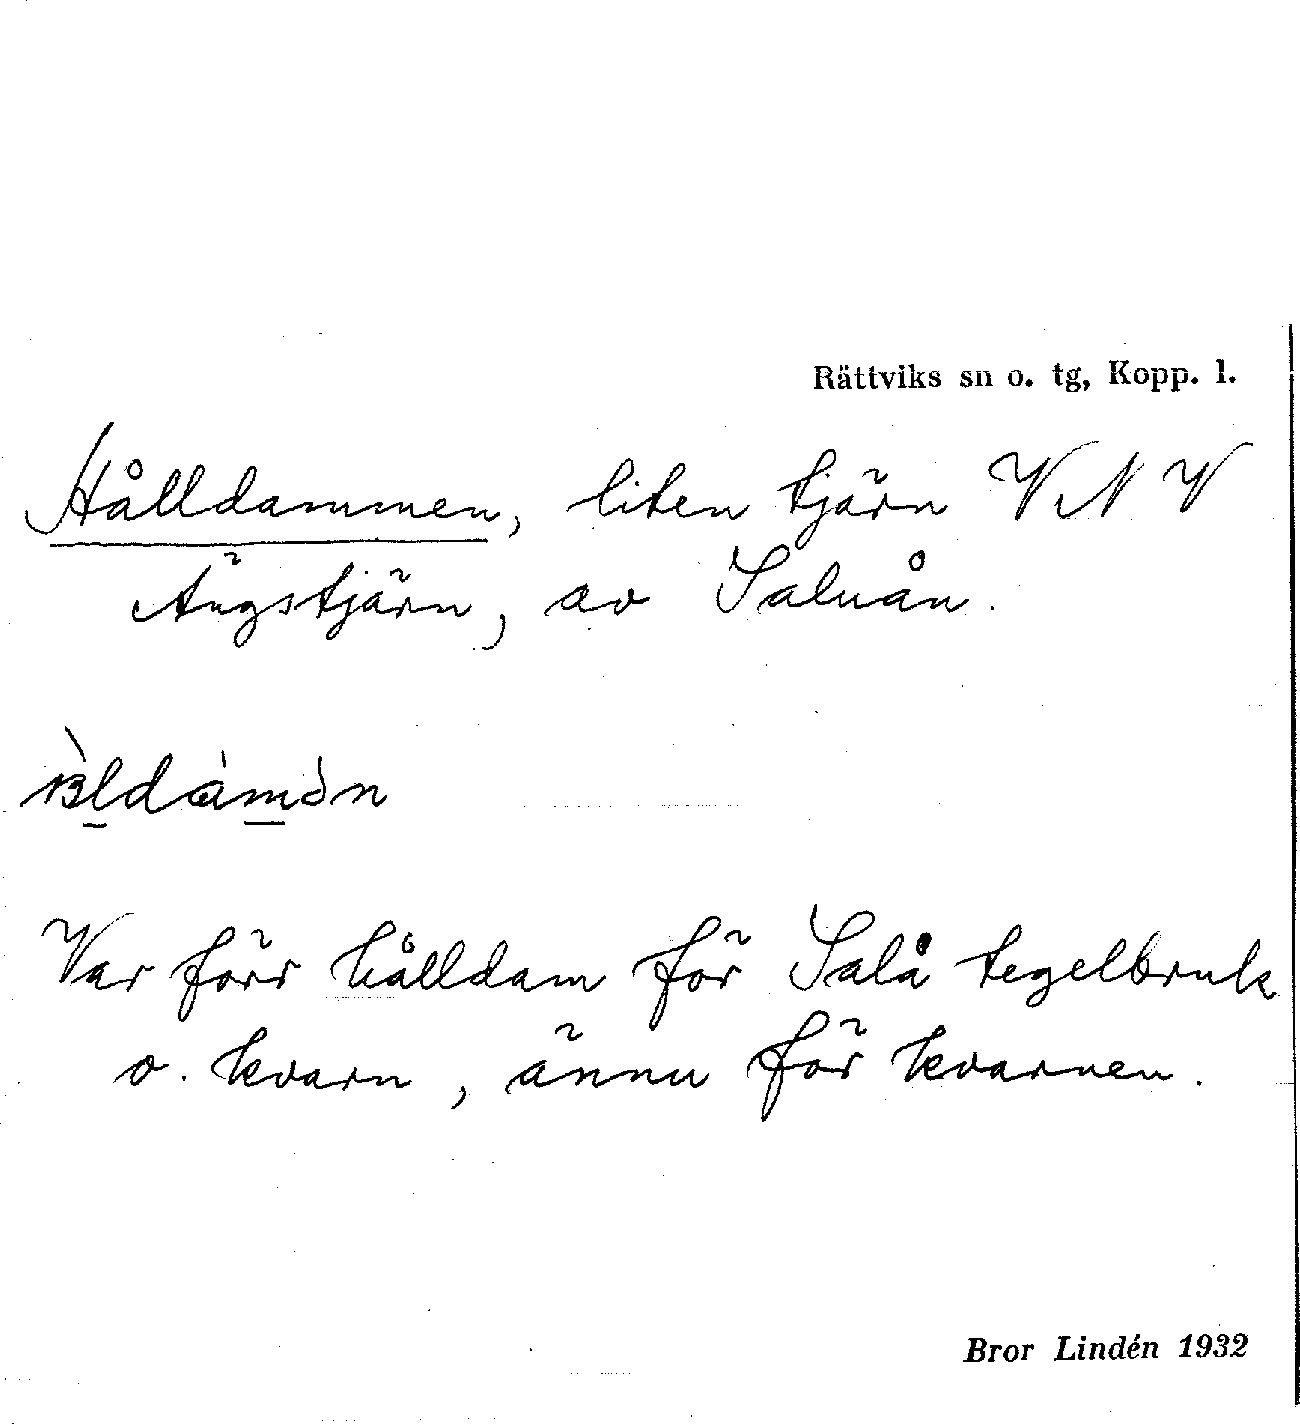 Rättviks sn o. tg, Kopp. l.
Hålldammen, liten tjärn VNV
Ängstjärn, av Saluån.
Var förr hålldam för Salå tegelbruk
o. kvarn, ännu för kvarnen.
Bror Lindén 1932